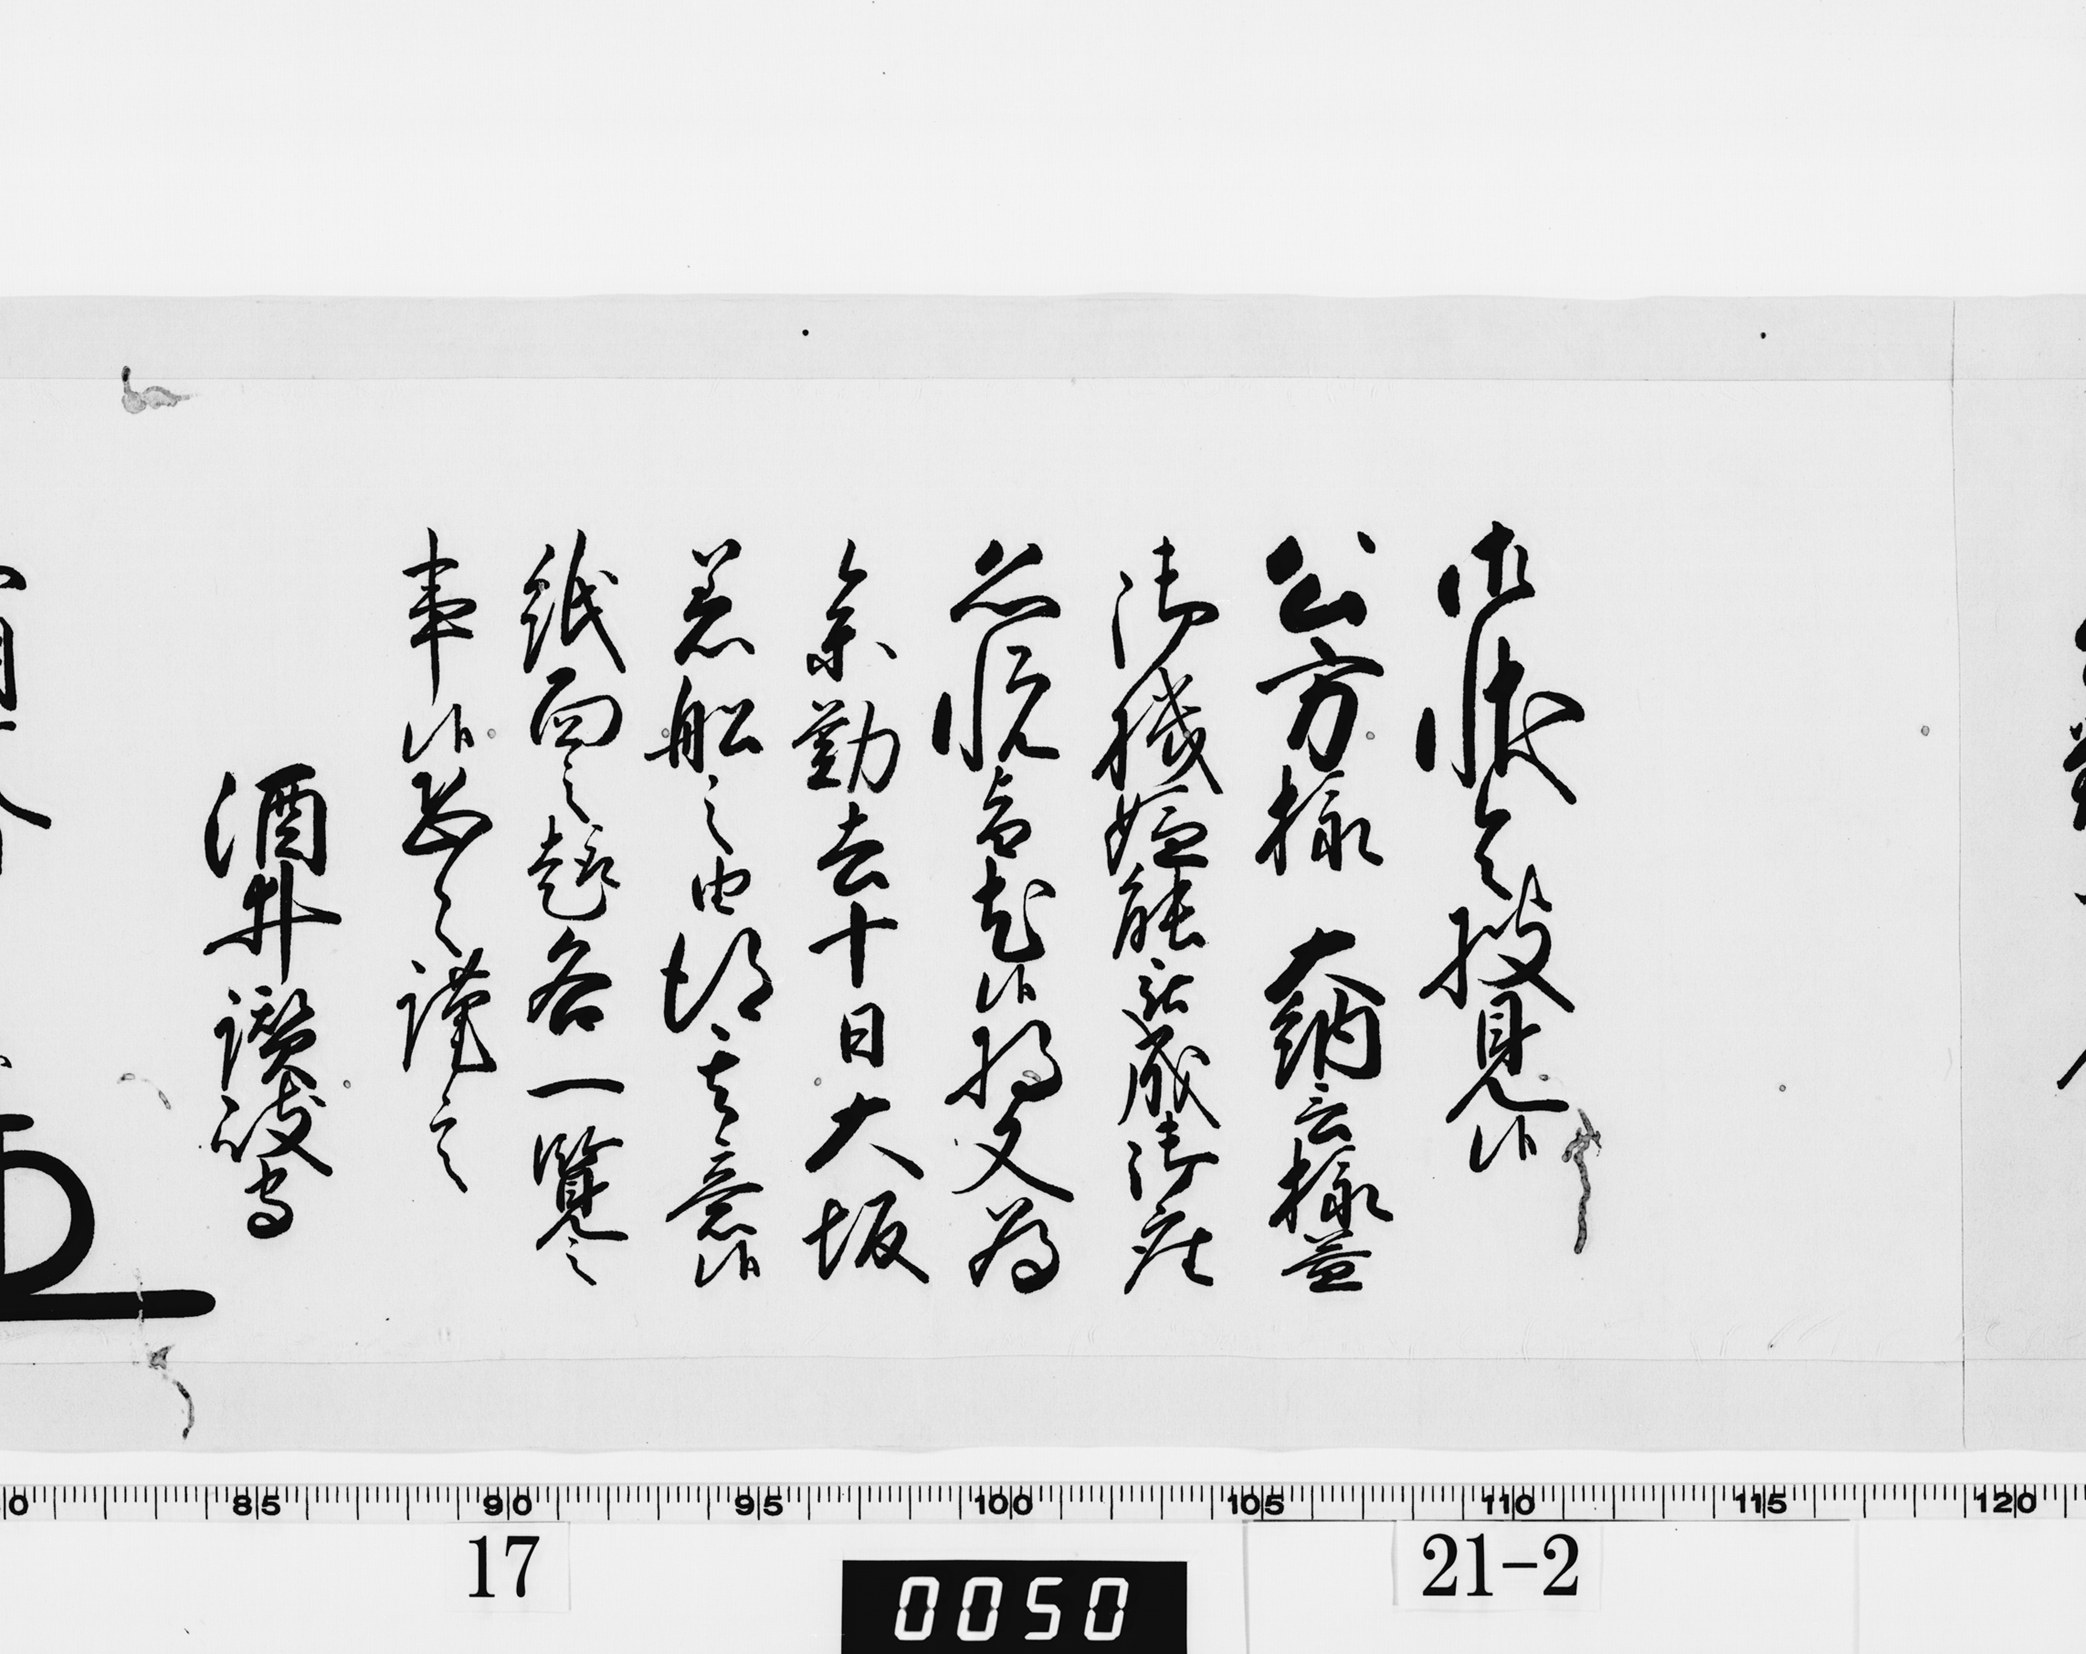 御状令披見候
公方様 大納言様益
御機嫌能被成御座
恐悦旨尤候将又為
参勤去十日大坂
着船之由得其意候
紙面之趣各一覧之
事候恐々謹言
酒井讃岐守
17
21-2
0050
85
90
95
100
105
110
115
120